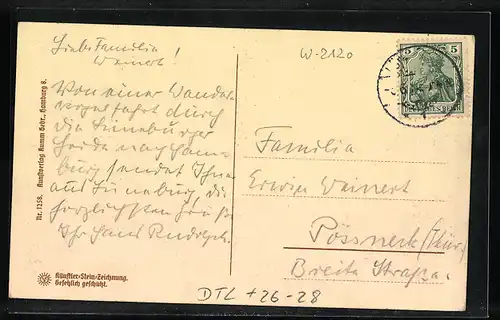 Liebe Familie
Weinert!
Von einer Wander-
vogelfahrt durch
die Lüneburger
Heide nach Ham-
burg sendet Ihnen
aus Lüneburg die
herzlichsten Grüße
Ihr Hans Rudolph.
W-2120
5 5
Familie
Erwin Weinert
Pössneck (Thür.)
Breite Straße.
DTL + 26-28
Nr. 1258. Kunstverlag Ramm Gebr., Hamburg 8.
Künstler-Stein-Zeichnung.
Gesetzlich geschützt.